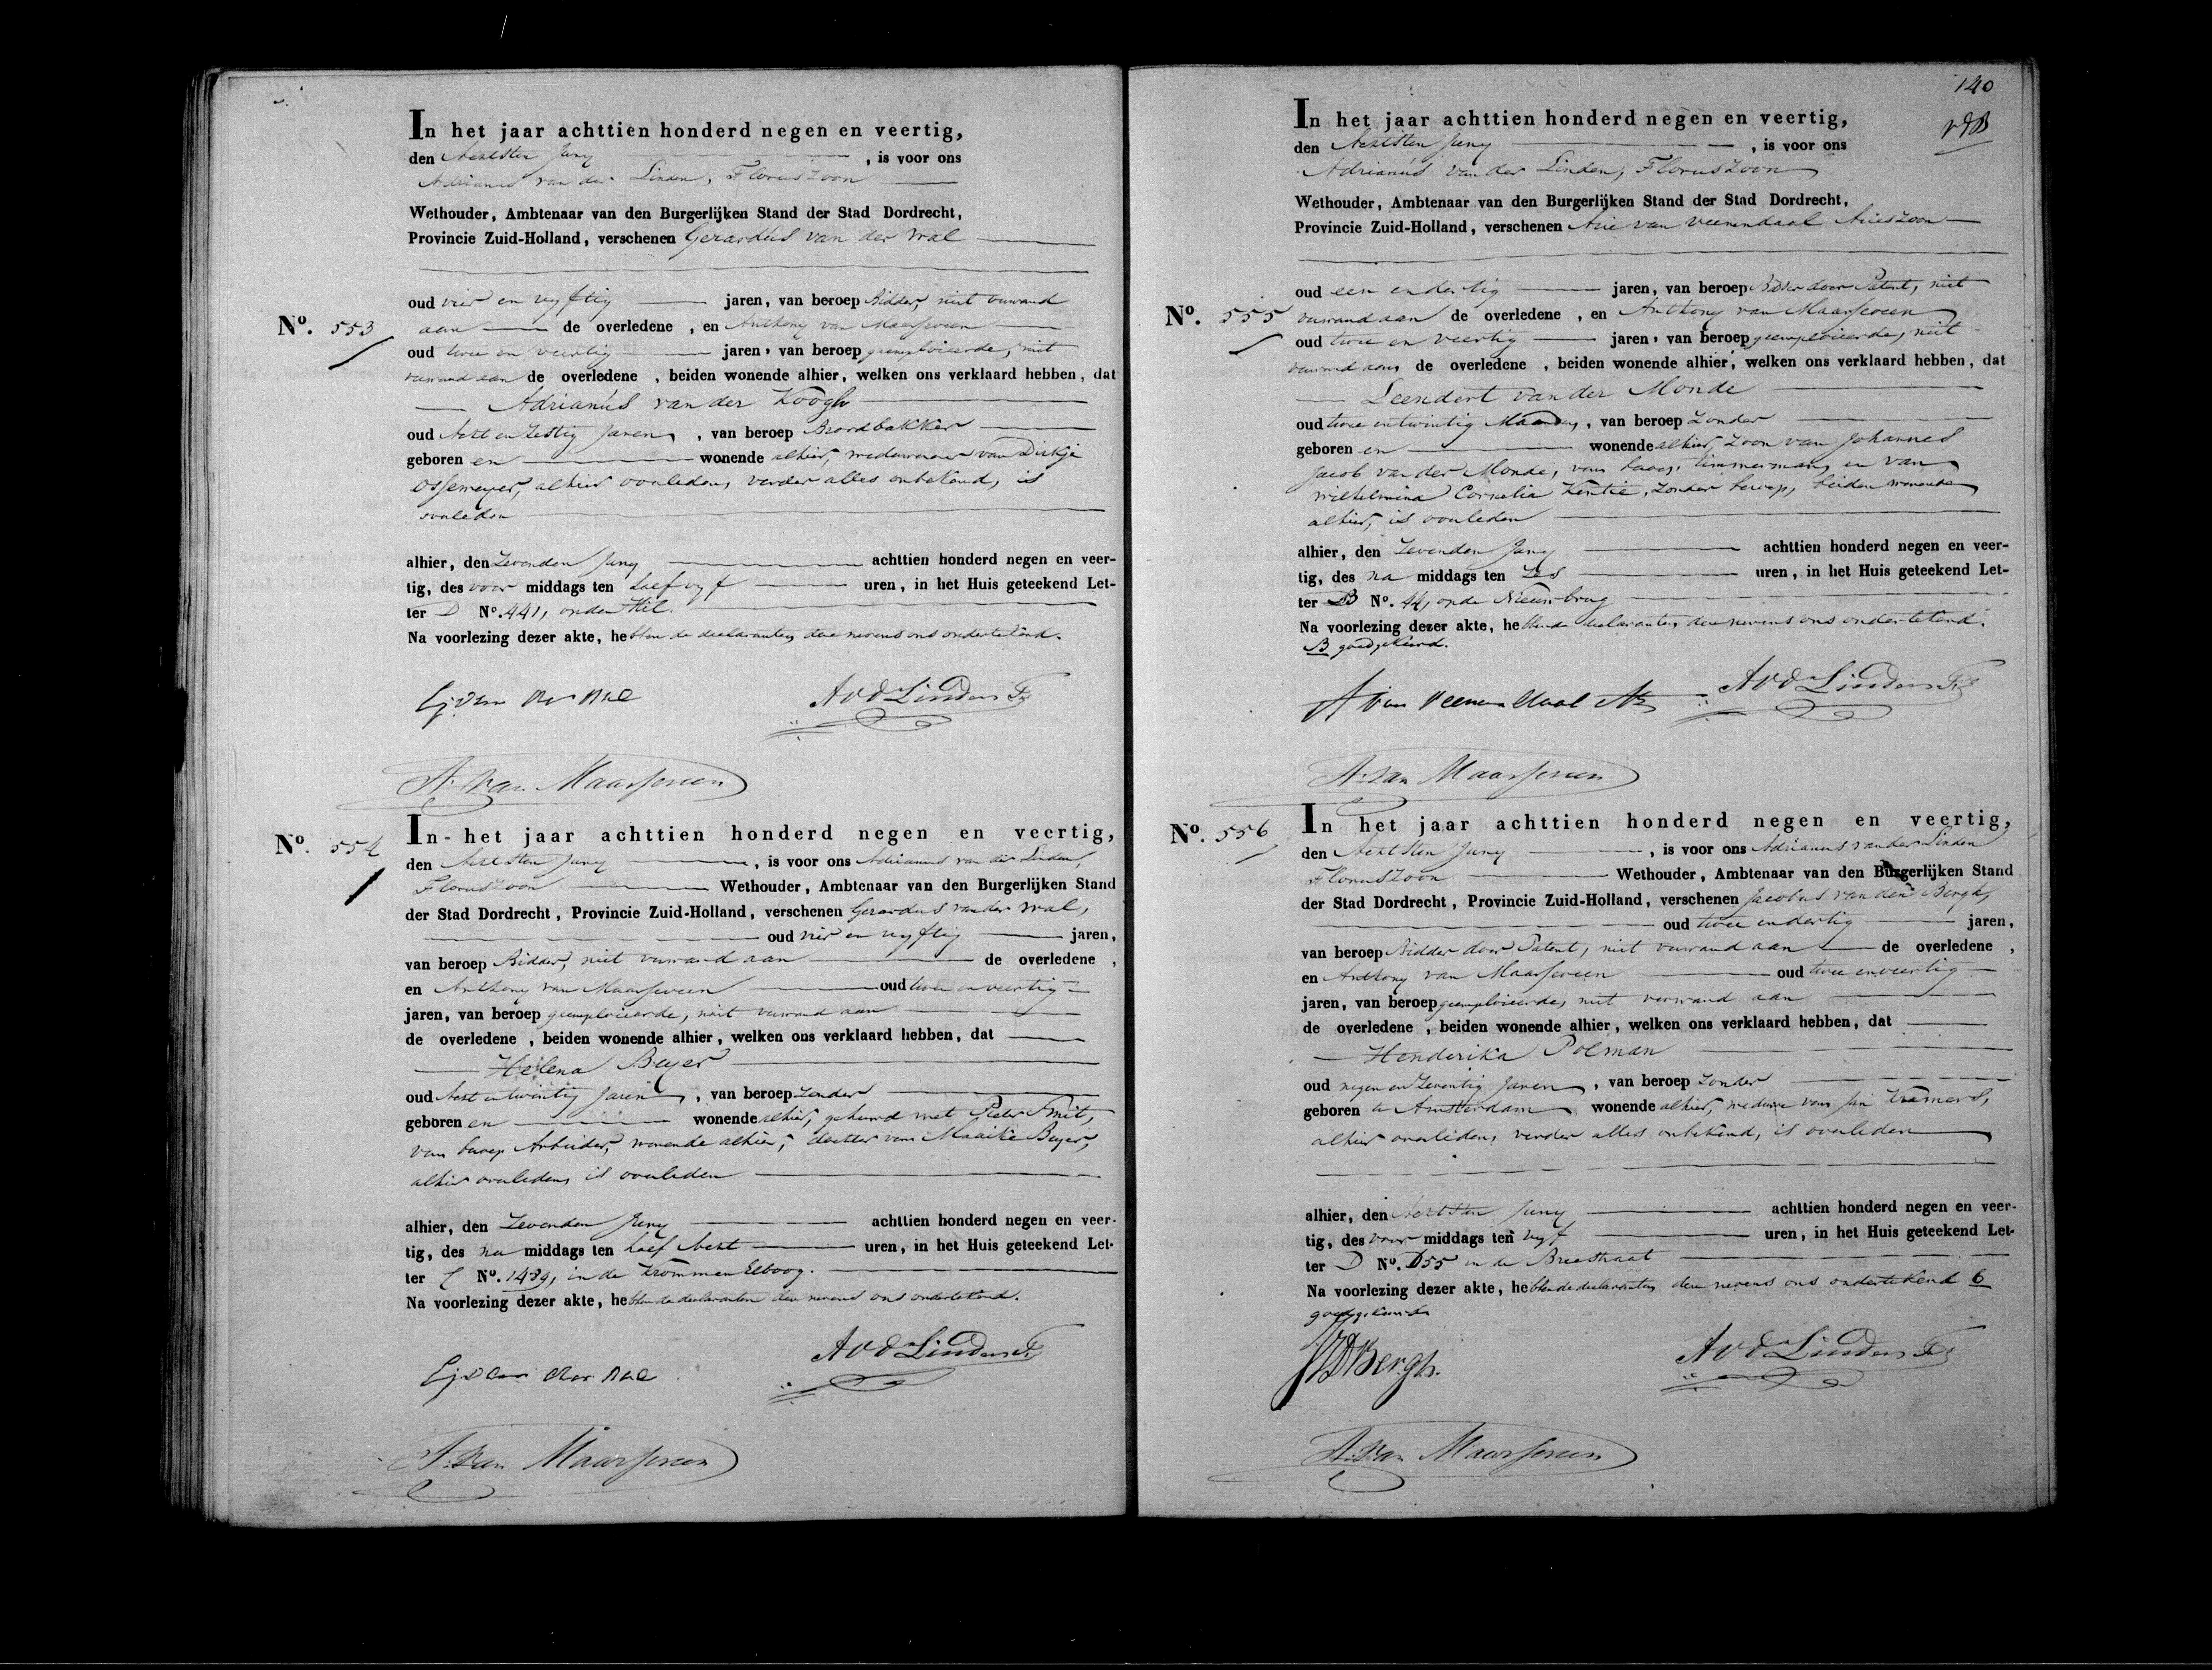 In het jaar achttien honderd negen en veertig,
den Achtsten Juny , is voor ons
Adrianus van der Linden, Floruszoon
Wethouder, Ambtenaar van den Burgerlijken Stand der Stad Dordrecht,
Provincie Zuid-Holland, verschenen Gerardus van der Wal
oud vier en vyftig jaren, van beroep Bidder, niet verwand
No. 553
aan de overledene , en Anthony van Maarseveen
oud twee en veertig jaren, van beroep geemploieerde, niet
verwand aan de overledene , beiden wonende alhier, welken ons verklaard hebben, dat
Adrianus van der Koogh
oud Acht en Zestig Jaren , van beroep Broodbakker
geboren en wonende alhier, weduwenaar van Dirkje
Ossemeyer, alhier overleden, verder alles onbekend, is
overleden
alhier, den Zevenden Juny achttien honderd negen en veer-
tig, des voor middags ten half vyf uren, in het Huis geteekend Let-
ter D No. 441, op den Hil.
Na voorlezing dezer akte, hebben de declaranten deze nevens ons ondertekend.
G. van der Wal
AVDLinden Fz
A. van Maarseveen
No. 554
In het jaar achttien honderd negen en veertig,
den Achtsten Juny , is voor ons Adrianus van der Linden,
Floruszoon Wethouder, Ambtenaar van den Burgerlijken Stand
der Stad Dordrecht, Provincie Zuid-Holland, verschenen Gerardus van der Wal,
oud vier en vyftig jaren,
van beroep Bidder, niet verwand aan de overledene ,
en Anthony van Maarseveen oud twee en veertig
jaren, van beroep geemploieerde, niet verwand aan
de overledene , beiden wonende alhier, welken ons verklaard hebben, dat
Helena Beyer
oud Acht en twintig Jaren , van beroep Zonder
geboren en wonende alhier, gehuwd met Pieter Smit,
van beroep Arbeider, wonende alhier, dochter van Maaike Beyer,
alhier overleden, is overleden
alhier, den Zevenden Juny achttien honderd negen en veer-
tig, des na middags ten half Acht uren, in het Huis geteekend Let-
ter C No. 1439, in de Krommen Elboog.
Na voorlezing dezer akte, hebben de declaranten deze nevens ons ondertekend.
G. van der Wal
AVDLinden Fz
A. van Maarseveen
140
vdB
In het jaar achttien honderd negen en veertig,
den Achtsten Juny , is voor ons
Adrianus van der Linden, Floruszoon
Wethouder, Ambtenaar van den Burgerlijken Stand der Stad Dordrecht,
Provincie Zuid-Holland, verschenen Arie van Veenendaal Arieszoon
oud een en dertig jaren, van beroep Bidder door Patent, niet
No. 555
verwand aan de overledene , en Anthony van Maarseveen
oud twee en veertig jaren, van beroep geemploieerde, niet
verwand aan de overledene , beiden wonende alhier, welken ons verklaard hebben, dat
Leendert van der Monde
oud twee en twintig Maanden , van beroep Zonder
geboren en wonende alhier, Zoon van Johannes
Jacob van der Monde, van beroep timmerman, en van
Wilhelmina Cornelia Kentie, Zonder beroep, beiden wonende
alhier, is overleden
alhier, den Zevenden Juny achttien honderd negen en veer-
tig, des na middags ten Zes uren, in het Huis geteekend Let-
ter B No. 44, op de Nieuwbrug
Na voorlezing dezer akte, hebben de declaranten deze nevens ons ondertekend.
B goedgekeurd.
A van Veenendaal Az
AVDLinden Fz
A. van Maarseveen
No. 556
In het jaar achttien honderd negen en veertig,
den Achtsten Juny , is voor ons Adrianus van der Linden
Floruszoon Wethouder, Ambtenaar van den Burgerlijken Stand
der Stad Dordrecht, Provincie Zuid-Holland, verschenen Jacobus van den Bergh,
oud twee en dertig jaren,
van beroep Bidder door Patent, niet verwand aan de overledene ,
en Anthony van Maarseveen oud twee en veertig
jaren, van beroep geemploieerde, niet verwand aan
de overledene , beiden wonende alhier, welken ons verklaard hebben, dat
Henderika Polman
oud negen en Zeventig Jaren , van beroep Zonder
geboren te Amsterdam wonende alhier, weduwe van Jan Kramers,
alhier overleden, verder alles onbekend, is overleden
alhier, den Achtsten Juny achttien honderd negen en veer-
tig, des voor middags ten vyf uren, in het Huis geteekend Let-
ter D No. 655 in de Breestraat
Na voorlezing dezer akte, hebben de declaranten deze nevens ons ondertekend 6
goedgekeurd
JVDBergh.
AVDLinden Fz
A. van Maarseveen